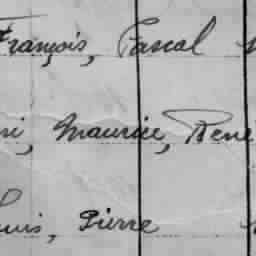 François, Pascal
ri, Maurice, René
Louis, Pierre